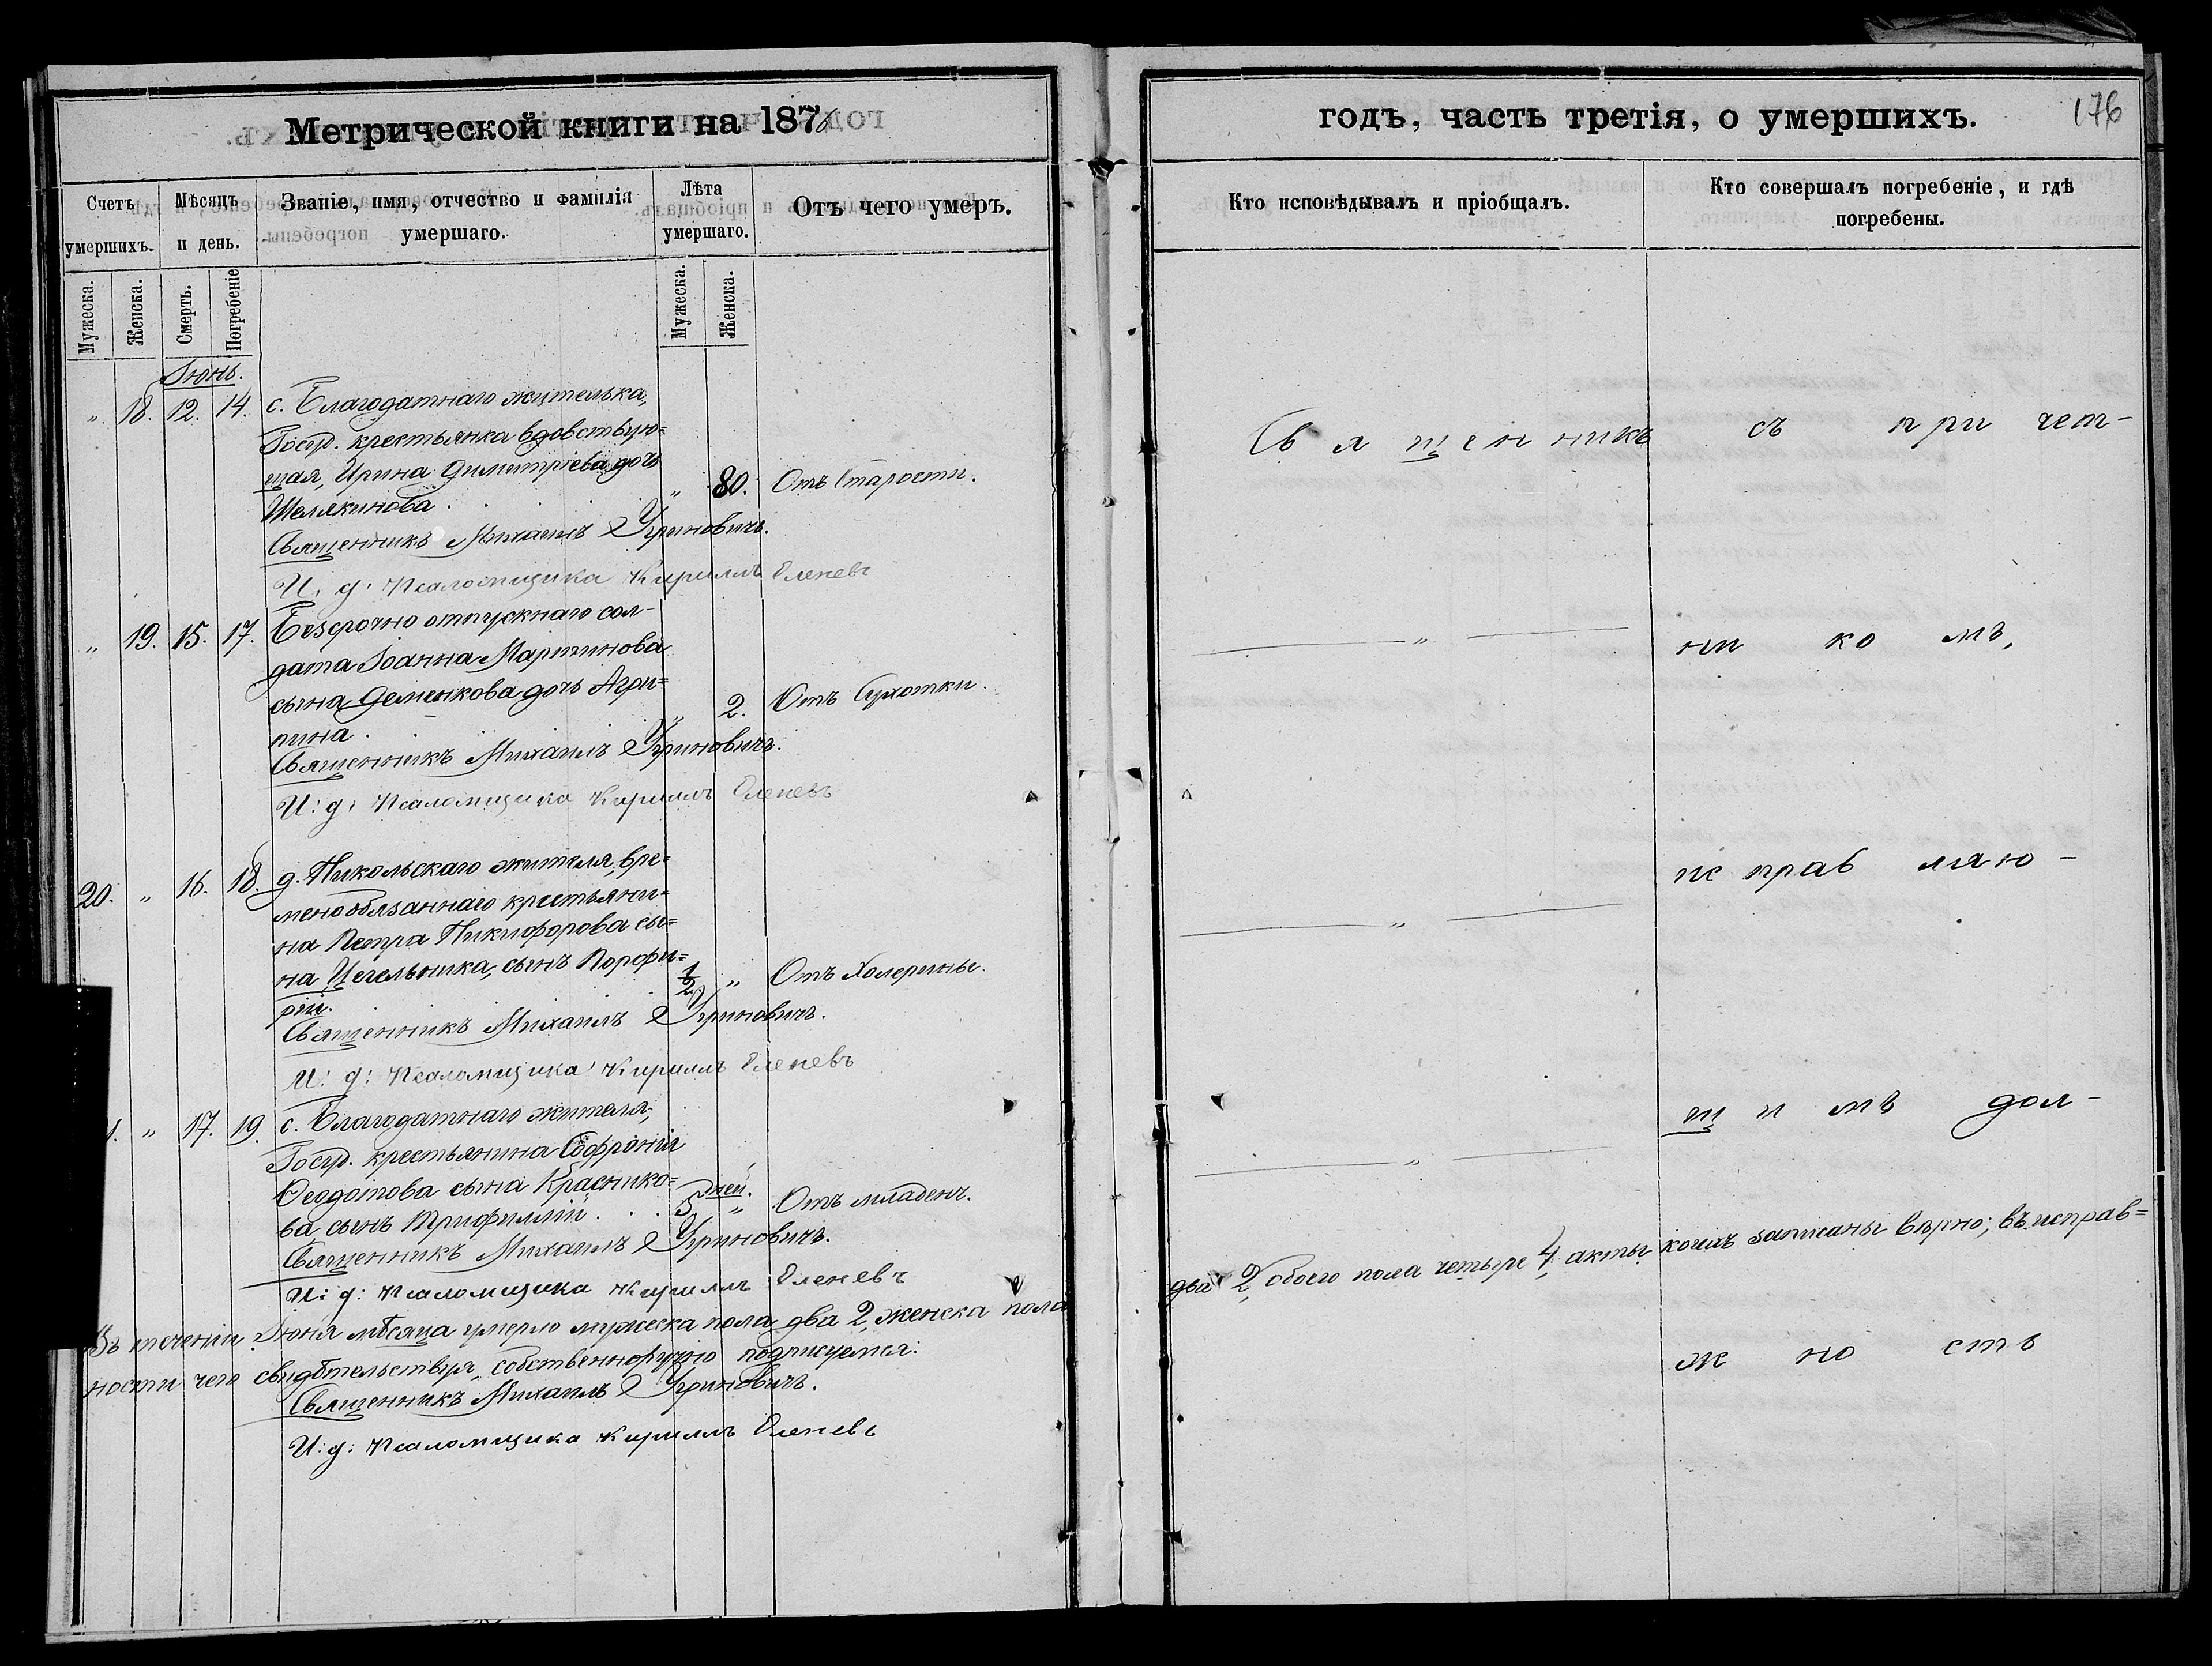 Метрической книги на 1876
Счетъ умершихъ.
Мѣсяцъ и день.
Званіе, имя, отчество и фамилія умершаго.
Лѣта умершаго.
Отъ чего умеръ.
Мужеска.
Женска.
Смерть.
Погребеніе
Мужеска.
Женска.
Іюнь.
„ 18. 12. 14. с. Благодатнаго жителька,
Госуд. крестьянка вдовствую=
щая, Ирина Димитріева дочь
Шелякинова. „ 80. Отъ Старости.
Священникъ Михаилъ Угриновичъ.
И. д. Псаломщика Кириллъ Еленевъ
„ 19. 15. 17. Безсрочно отпускнаго сол-
дата Іоанна Мартинова
сына Деменкова дочь Агри=
пина. „ 2. Отъ Сухотки.
Священникъ Михаилъ Угриновичъ.
И: д: Псаломщика Кириллъ Еленевъ
20. „ 16. 18. д. Никольскаго жителя, вре=
менообязаннаго крестьяни=
на Петра Никифорова сы=
на Цегельника, сынъ Порфи=
рій. 1/2 „ Отъ Холерины.
Священникъ Михаилъ Угриновичъ.
И: д: Псаломщика Кириллъ Еленевъ
„ 17. 19. с. Благодатнаго жителя,
Госуд. крестьянина Софронія
Ѳеодотова сына Краснико=
ва, сынъ Трифиллій . . . 5 дней. „ Отъ младенч.
Священникъ Михаилъ Угриновичъ.
И: д: Псаломщика Кириллъ Еленевъ
Въ теченіи Іюня мѣсяца умерло мужеска пола два 2, женска пола
ности чего свидѣтельствуя, собственноручно подписуемся:
Священникъ Михаилъ Угриновичъ.
И: д: Псаломщика Кириллъ Еленевъ
годъ, часть третія, о умершихъ. 176
Кто исповѣдывалъ и пріобщалъ.
Кто совершалъ погребеніе, и гдѣ погребены.
Священникъ съ причет-
„ никомъ,
„ исправляю-
„ щимъ дол-
два 2, обоего пола четыре 4, акты коихъ записаны вѣрно; въ исправ=
жность